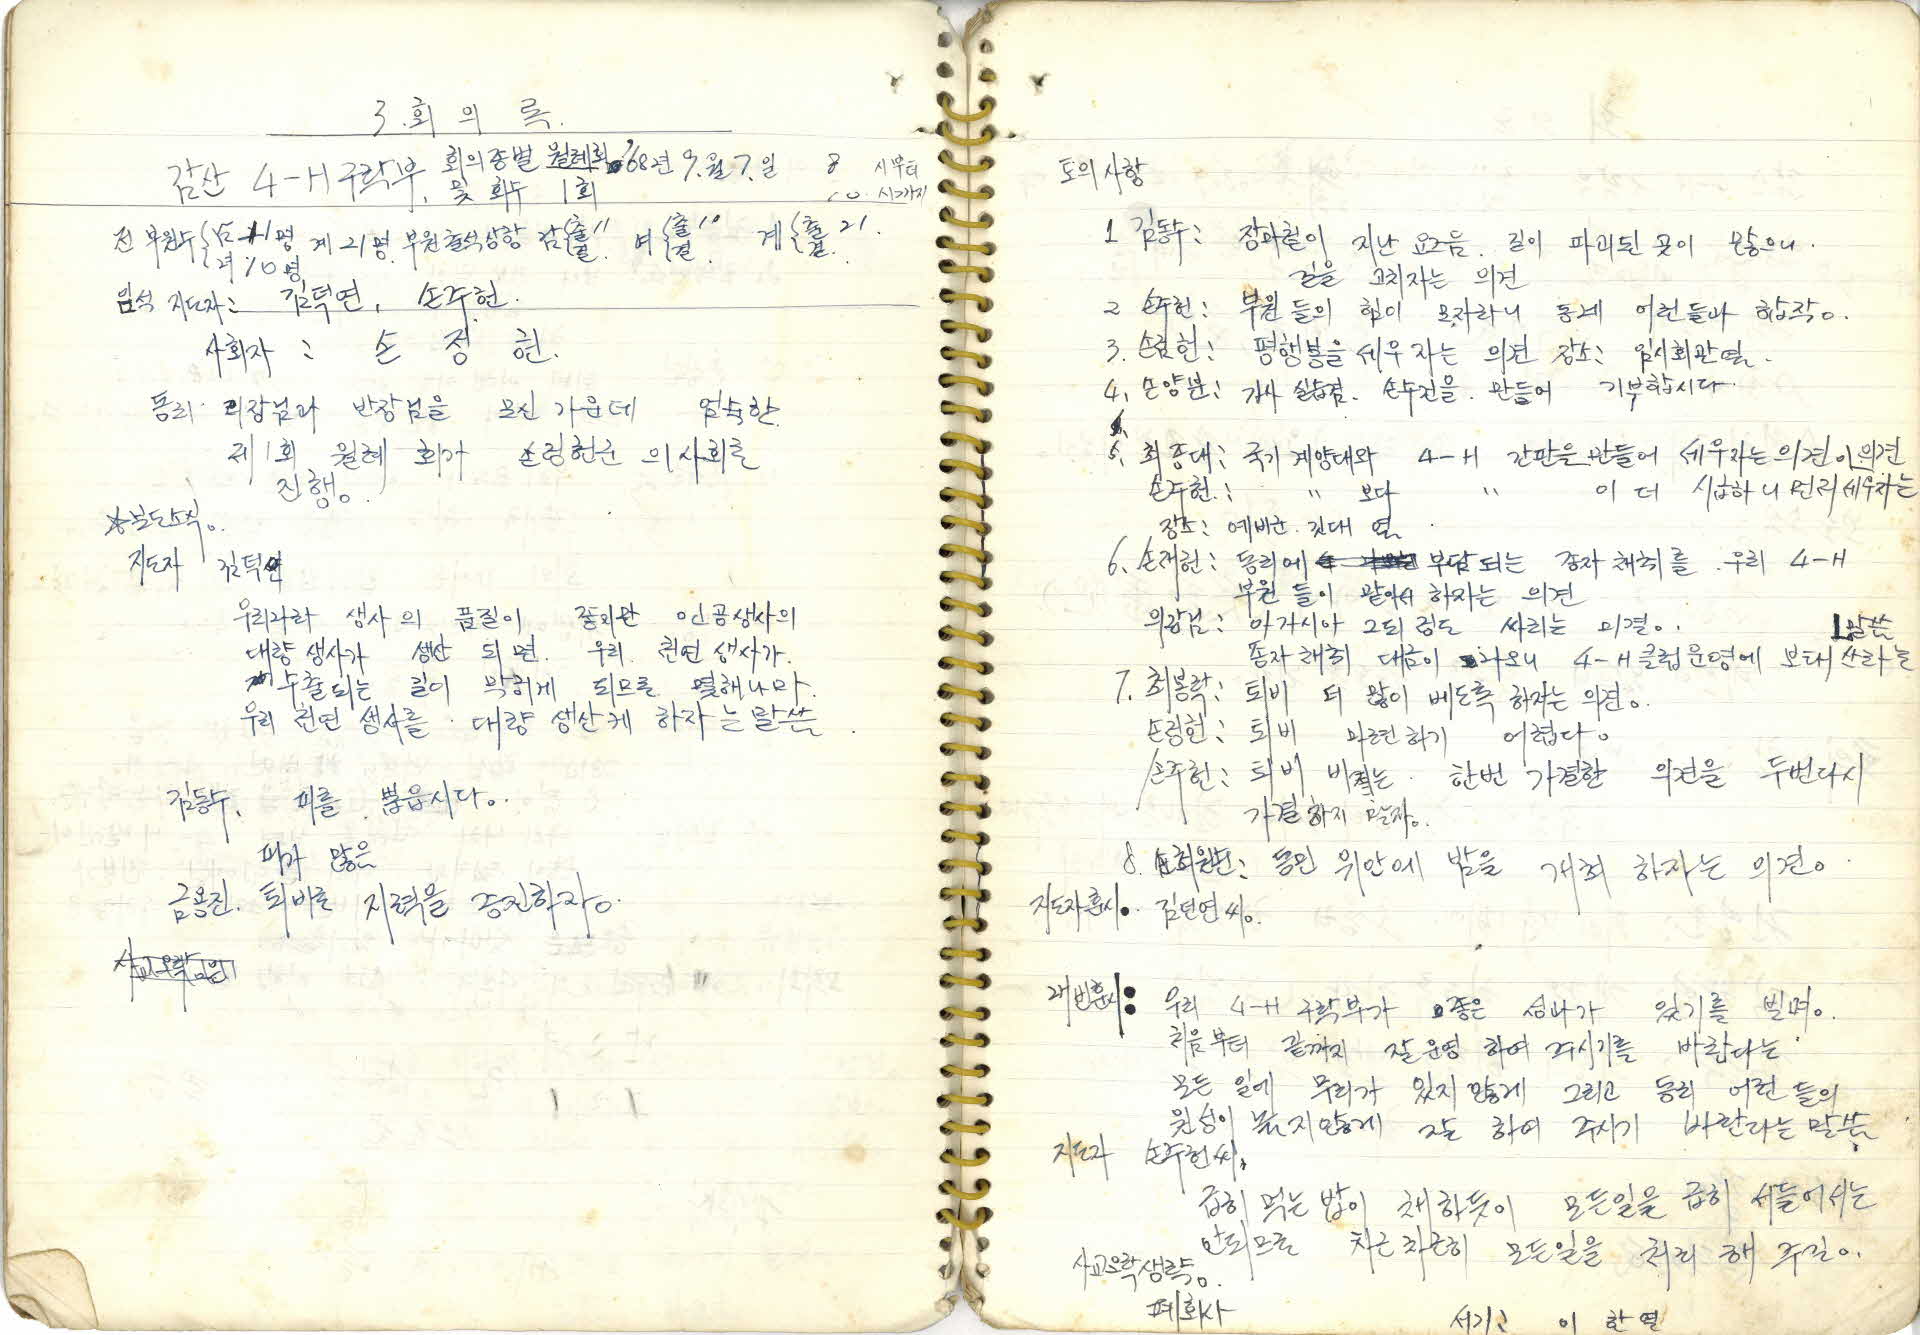 3. 회 의 록.
감산 4-H 구락부. 회의종별 월례회 '68년 9.월 7.일 8 시부터
및 회수 1회 10. 시까지
전 부원수 남 11명 계 21명. 부원출석상황 남 출 11 여 출 10 계 출 21.
녀 10명 결 결 결
임석 지도자: 김덕연, 손주헌.
사회자 : 손 정 헌.
동리 리장님과 반장님을 모신 가운데 엄숙한
제1회 월례 회가 손정헌군 의사회로
진행.
보도소식.
지도자 김덕연
우리나라 생사의 품질이 좋와 인공생사의
대량 생사가 생산 되면. 우리 천연 생사가.
수출되는 길이 막히게 되므로 멸해나마.
우리 천연 생사를 대량 생산케 하자는 말씀
김동수. 피를 뽑읍시다.
피가 많은
금용진. 퇴비로 지력을 증진하자.
토의 사항
1 김동수: 장마철이 지난 요즈음. 길이 파괴된 곳이 많으니.
길을 고치자는 의견
2 손주헌: 부원 들의 힘이 모자라니 동네 어런들과 합작.
3. 손정헌: 평행봉을 세우자는 의견 장소: 임시회관옆.
4. 손양분: 가사 실습겸. 손수건을. 만들어 기부합시다.
5. 최종대: 국기 계양대와 4-H 간판을 만들어 세우자는 의견이 의견
손주헌.: " 보다 " 이 더 시급하니 먼저 세우자는
장소: 예비군 깃대 옆.
6. 손재헌: 동리에 부담되는 종자 채취를 우리 4-H
부원 들이 맡아서 하자는 의견
의장님: 아가시아 그외 정도 싸리는 미결. 말씀
종자 채취 대금이 나오니 4-H 클럽 운영에 보태 쓰라는
7. 최봉락: 퇴비 더 많이 베도록 하자는 의견.
손정헌: 퇴비 마련하기 어렵다.
손주헌: 퇴비 비치는 한번 가결한 의견을 두번다시
가결하지 말자.
8. 손회원: 동민 위안에 밤을 개최 하자는 의견.
지도자훈시. 김덕연 씨.
래빈훈시: 우리 4-H 구락부가 좋은 성과가 있기를 빌며.
처음부터 끝까지 잘 운영 하여 주시기를 바란다는
모든 일에 무리가 있지 않게 그리고 동리 어런 들의
원성이 높지않게 잘 하여 주시기 바란다는 말씀
지도자 손주헌 씨,
급히 먹는 밥이 채하듯이 모든일을 급히 서들어서는
안되므로 차근차근히 모든일을 처리 해 주길.
사교오락 생략.
폐회사
서기: 이 한 열